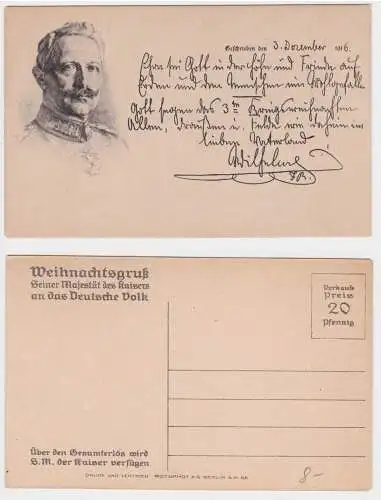 Geschrieben den 3. Dezember 1916.
Ehre sei Gott in der Höhe und Friede auf
Erden und den Menschen ein Wohlgefallen
Gott segne das 3te Kriegsweihnachten
Allen, draußen i. Felde wie daheim im
lieben Vaterland
Wilhelm
I.R.
Weihnachtsgruß
Seiner Majestät des Kaisers
an das Deutsche Volk
Verkaufs
Preis
20
Pfennig
Über den Gesamterlös wird
S.M. der Kaiser verfügen
8-